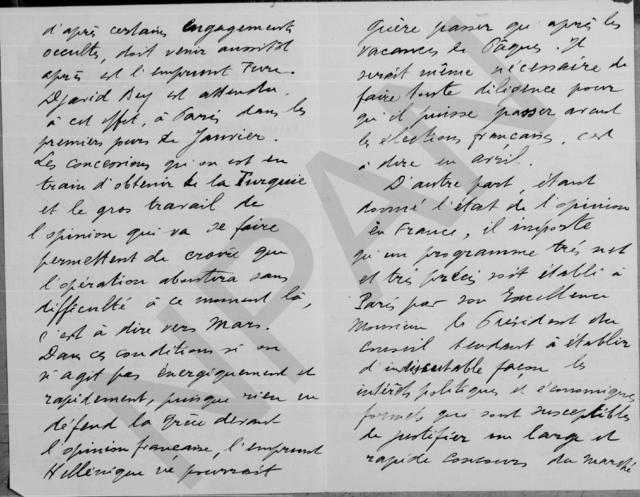 d'après certains engagements
occultes, doit venir aussitôt
après est l'emprunt Turc.
Djavid Bey est attendu,
à cet effet, à Paris dans les
premiers jours de Janvier.
Les concessions qu'on est en
train d'obtenir de la Turquie
et le gros travail de
l'opinion qui va se faire
permettent de croire que
l'opération aboutira sans
difficulté à ce moment là,
c'est à dire vers Mars.
Dans ces conditions si on
n'agit pas énergiquement et
rapidement, puisque rien ne
défend la Grèce devant
l'opinion française, l'emprunt
Hellénique ne pourrait
guère passer qu'après les
vacances de Pâques. Il
serait même nécessaire de
faire toute diligence pour
qu'il puisse passer avant
les élections françaises, c'est
à dire en avril.
D'autre part, étant
donné l'état de l'opinion
en France, il importe
qu'un programme très net
et très précis soit établi à
Paris par son Excellence
Monsieur le Président du
Conseil tendant à établir
d'indiscutable façon les
intérêts politiques et économiques
formels qui sont susceptibles
de justifier un large et
rapide concours du marché
NPAN